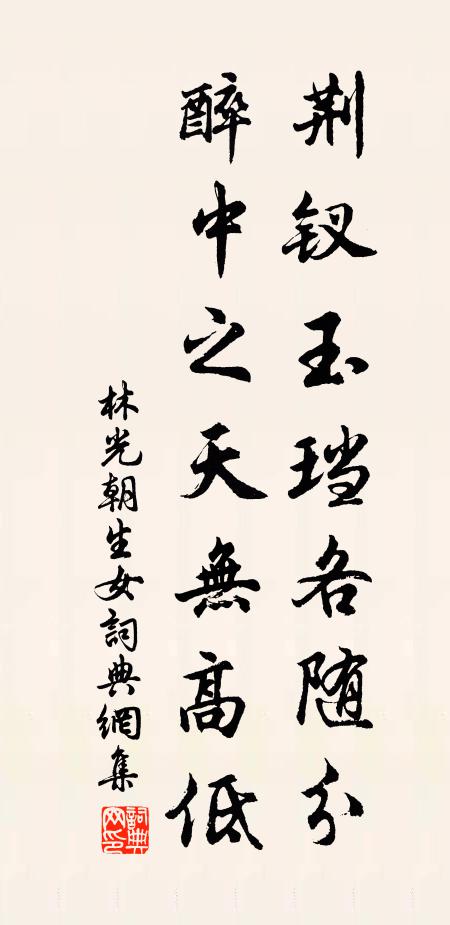 荆钗玉珰各随分
醉中之天無高低
林光朝生女詞典網集
詞典网印